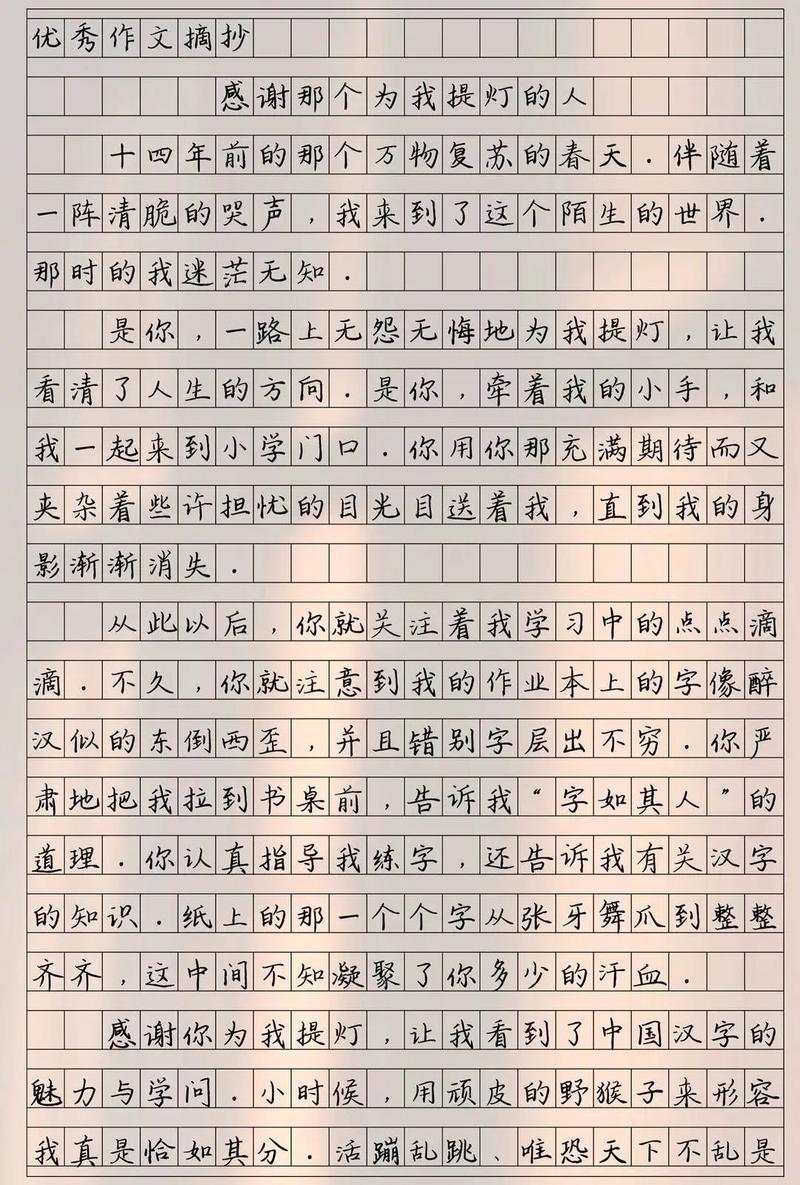 优秀作文摘抄
感谢那个为我提灯的人
十四年前的那个万物复苏的春天.伴随着
一阵清脆的哭声,我来到了这个陌生的世界.
那时的我迷茫无知.
是你,一路上无怨无悔地为我提灯,让我
看清了人生的方向.是你,牵着我的小手,和
我一起来到小学门口.你用你那充满期待而又
夹杂着些许担忧的目光目送着我,直到我的身
影渐渐消失.
从此以后,你就关注着我学习中的点点滴
滴.不久,你就注意到我的作业本上的字像醉
汉似的东倒西歪,并且错别字层出不穷.你严
肃地把我拉到书桌前,告诉我“字如其人”的
道理.你认真指导我练字,还告诉我有关汉字
的知识.纸上的那一个个字从张牙舞爪到整整
齐齐,这中间不知凝聚了你多少的汗血.
感谢你为我提灯,让我看到了中国汉字的
魅力与学问.小时候,用顽皮的野猴子来形容
我真是恰如其分.活蹦乱跳、唯恐天下不乱是